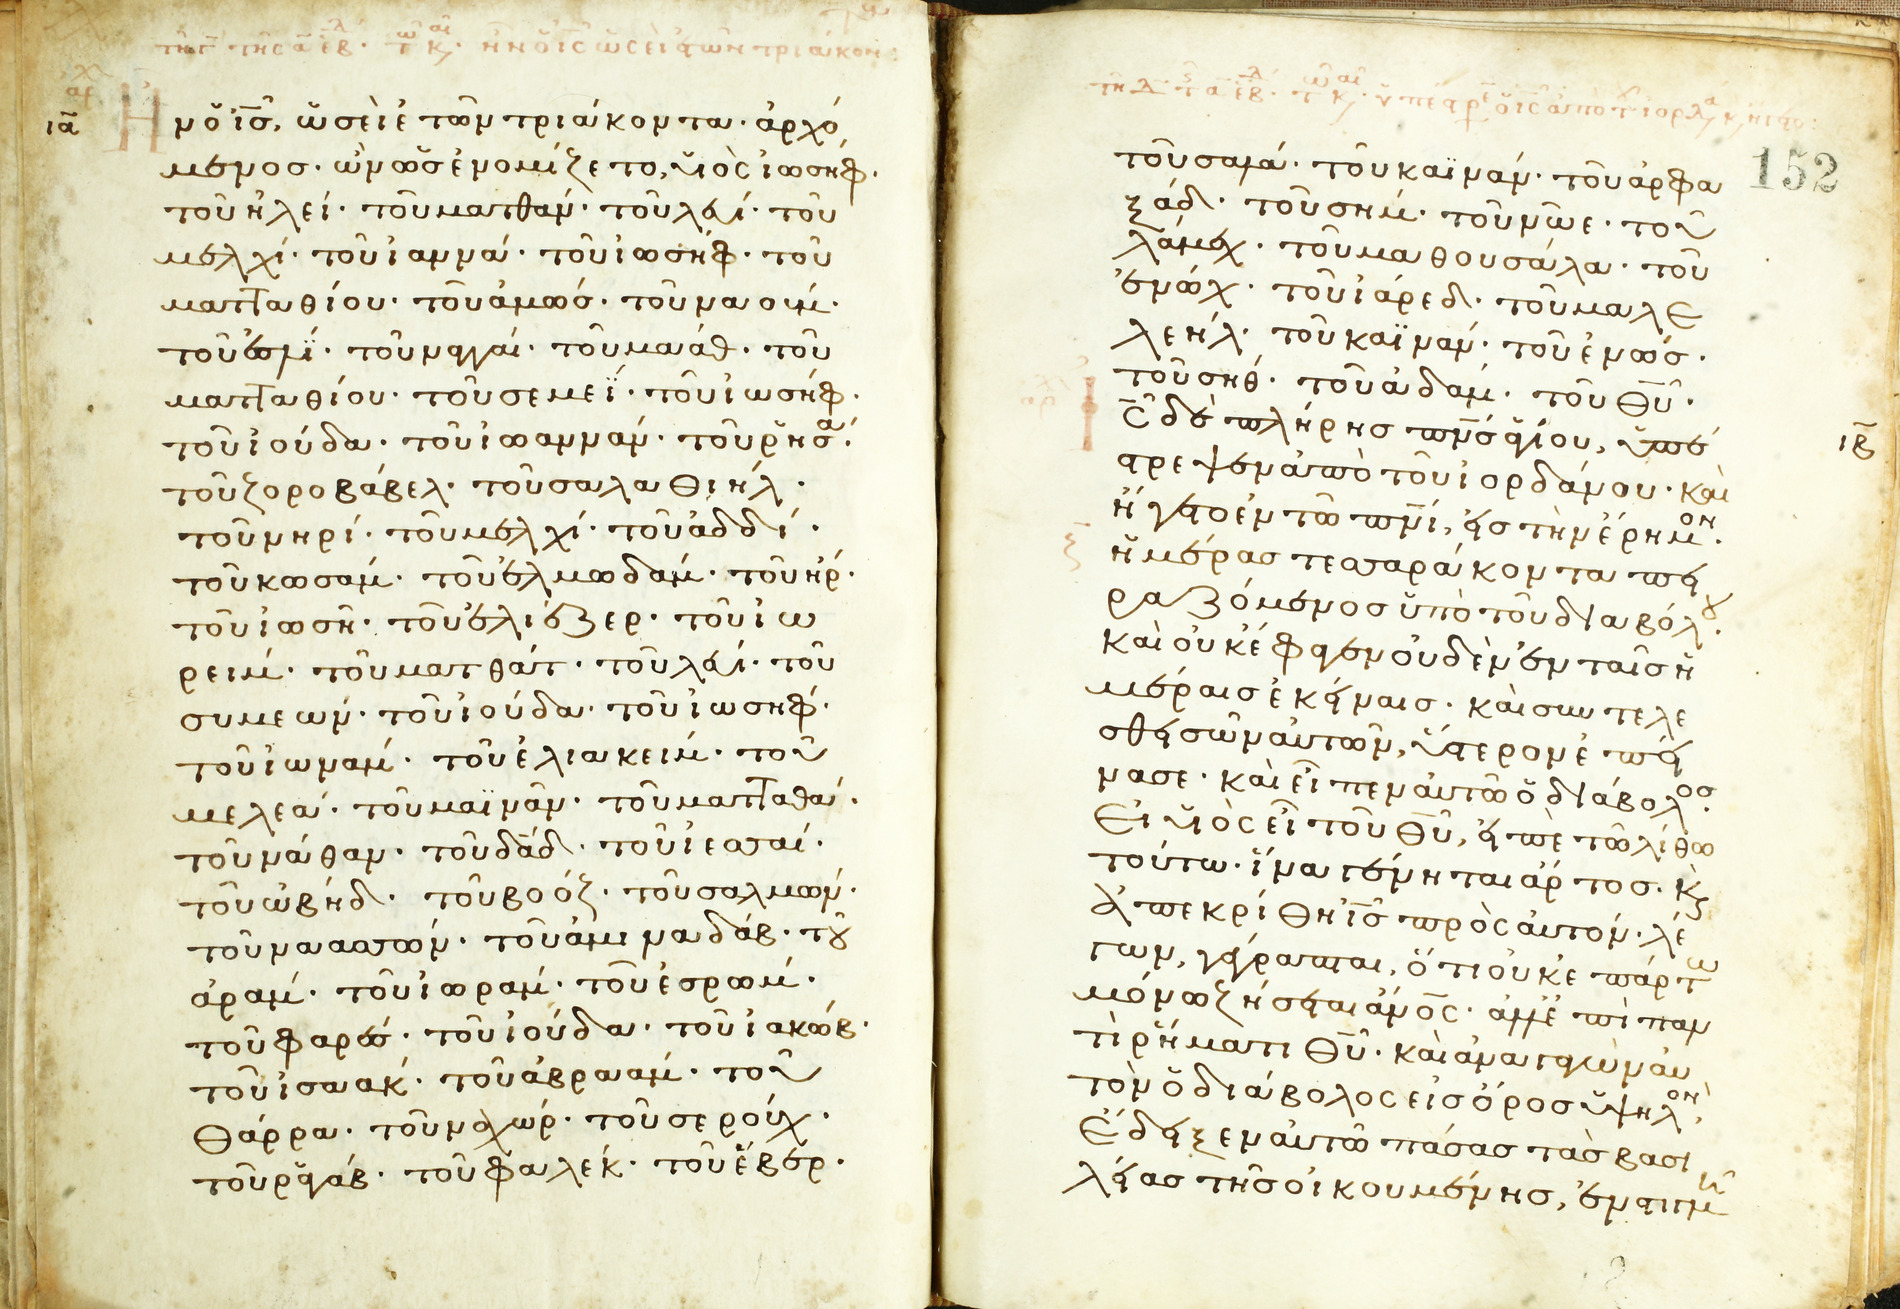 τῇ γ τῆς α ἑβ. τῷ κ. ἦν ὁ ις ὡσεὶ ἐτῶν τριάκον:
αρ
ια
Ην ὁ ις, ὡσεὶ ἐτῶν τριάκοντα· ἀρχό
μενος· ὢν ὡς ἐνομίζετο, υἱὸς ἰωσήφ·
τοῦ ἠλεί· τοῦ ματθάν· τοῦ λευί· τοῦ
μελχί· τοῦ ἰαννά· τοῦ ἰωσήφ· τοῦ
ματταθίου· τοῦ ἀμώς· τοῦ ναούμ·
τοῦ ἐσλΐ· τοῦ ναγγαί· τοῦ μαάθ· τοῦ
ματταθίου· τοῦ σεμεΐ· τοῦ ἰωσήφ·
τοῦ ἰούδα· τοῦ ἰωαννάν· τοῦ ῥησά·
τοῦ ζοροβάβελ· τοῦ σαλαθιήλ·
τοῦ νηρί· τοῦ μελχί· τοῦ ἀδδί·
τοῦ κωσάμ· τοῦ ἐλμωδάμ· τοῦ ἤρ·
τοῦ ἰωσῆ· τοῦ ἐλιέζερ· τοῦ ἰω
ρείμ· τοῦ ματθάτ· τοῦ λευί· τοῦ
συμεών· τοῦ ἰούδα· τοῦ ἰωσήφ·
τοῦ ἰωνάμ· τοῦ ἐλιακείμ· τοῦ
μελεά· τοῦ μαϊνᾶν· τοῦ ματταθά·
τοῦ νάθαν· τοῦ δαδ· τοῦ ἰεσσαί·
τοῦ ὠβήδ· τοῦ βοόζ· τοῦ σαλμών·
τοῦ ναασσών· τοῦ ἀμιναδάβ· τοῦ
ἀράμ· τοῦ ἰωράμ· τοῦ ἐσρώμ·
τοῦ φαρές· τοῦ ἰούδα· τοῦ ἰακώβ·
τοῦ ἰσαάκ· τοῦ ἀβραάμ· τοῦ
θάρρα· τοῦ ναχώρ· τοῦ σερούχ·
τοῦ ῥαγάβ· τοῦ φαλέκ· τοῦ ἔβέρ·
152
τοῦ σαλά· τοῦ καϊνάν· τοῦ ἀρφα
ξάδ· τοῦ σήμ· τοῦ νῶε· τοῦ
λάμεχ· τοῦ μαθουσάλα· τοῦ
ἐνώχ· τοῦ ἰάρεδ· τοῦ μαλε
λεήλ· τοῦ καϊνάν· τοῦ ἐνώς·
τοῦ σήθ· τοῦ ἀδάμ· τοῦ θυ·
ιβ
Ις δὲ πλήρης πνς ἁγίου, ὑπέ
στρεψεν ἀπὸ τοῦ ἰορδάνου· καὶ
ἤγετο ἐν τῷ πνι, εἰς τὴν ἔρημον·
ἡμέρας τεσσαράκοντα πει
ραζόμενος ὑπὸ τοῦ διαβόλου·
καὶ οὐκ ἔφαγεν οὐδὲν ἐν ταῖς ἡ
μέραις ἐκείναις· καὶ συντελε
σθεισῶν αὐτῶν, ὕστερον ἐπεί
νασε· καὶ εἶπεν αὐτῷ ὁ διάβολος·
Εἰ υἱὸς εἶ τοῦ θυ, εἰπὲ τῷ λίθῳ
τούτω· ἵνα γένηται ἄρτος· κ
ἀπεκρίθη ις πρὸς αὐτόν· λέ
γων, γέγραπται, ὅτι οὐκ ἐπ ἄρτω
μόνω ζήσεται ανος· ἀλλ ἐπὶ παν
τὶ ῥήματι θυ· καὶ ἀναγαγὼν αὐ
τὸν ὁ διάβολος εἰς ὄρος ὑψηλὸν,
ἔδειξεν αὐτῷ πάσας τὰς βασι
λείας τῆς οἰκουμένης, ἐν στιγμῆ